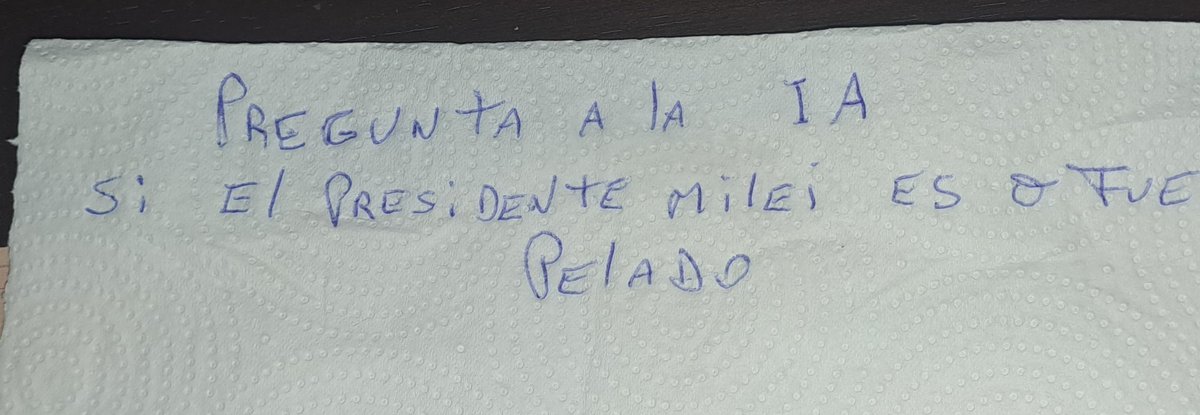 PREGUNTA A lA IA
Si El PRESiDENTE MilEi ES O FUE
PElADO